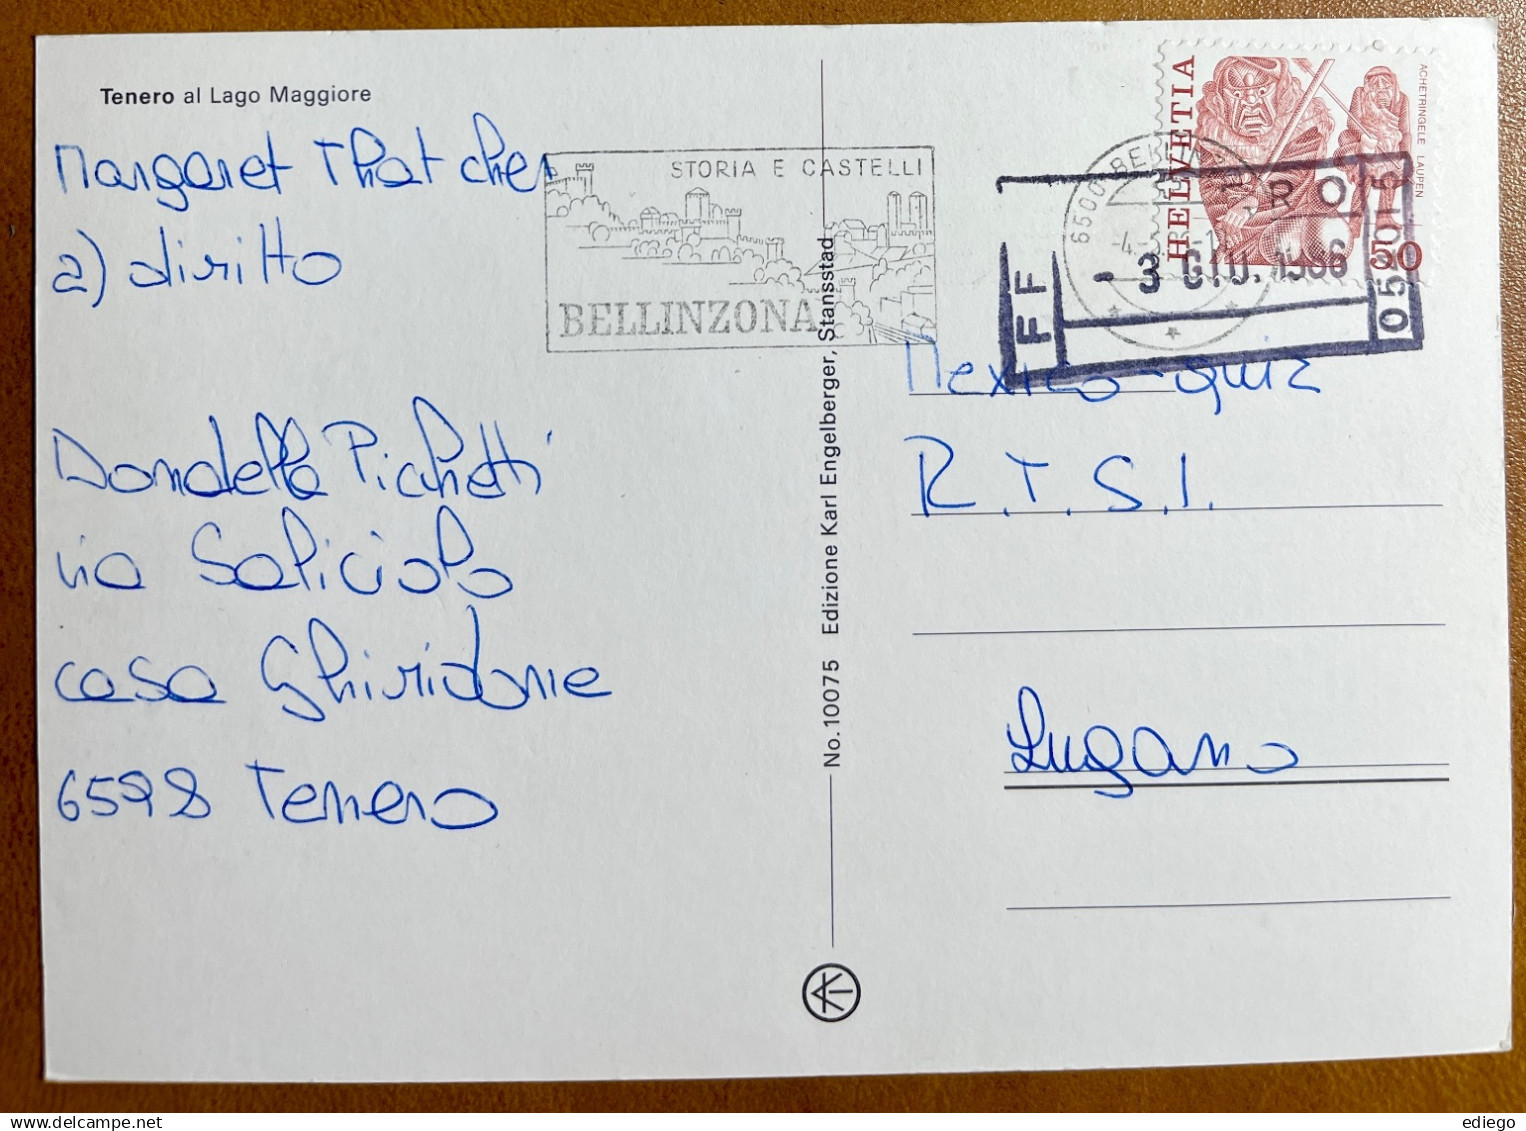 Tenero al Lago Maggiore
Margaret Thatcher
a) diritto
Donatella Pichetti
via Saliciolo
casa Ghiridone
6598 Tenero
STORIA E CASTELLI
BELLINZONA
No. 10075 Edizione Karl Engelberger, Stansstad
HELVETIA
ACHETRINGELE LAUPEN
6500 BELLINZONA
FF
- 3 GIU. 1986
Mexico-quiz
R.T.S.I.
Lugano
ediego